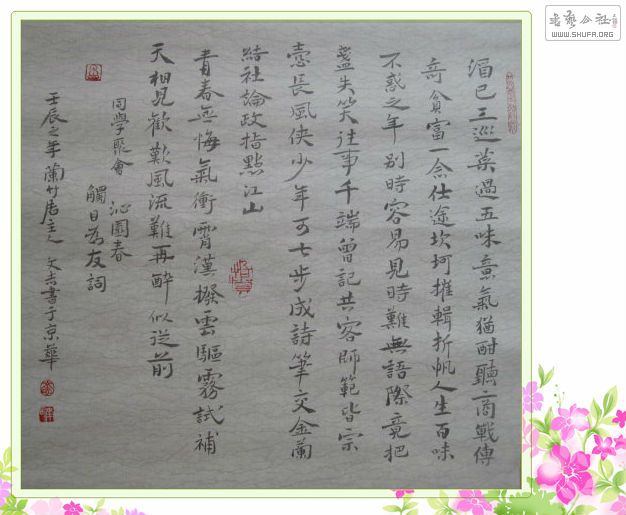 酒已三巡菜過五味意氣猶酣聽商戰傳
奇貧富一念仕途坎坷摧輯折帆人生百味
不惑之年別時容易見時難無語際竟把
盞失笑往事千端曾記共客師範皆宗
慤長風俠少年可七步成詩筆交金蘭
結社論政指點江山
青春無悔氣衝霄漢撥雲驅霧試補
天相見歡歎風流難再醉似從前
同學聚會 沁園春
觸目為友詞
壬辰之年蘭竹居主人 文志書于京華
書藝公社
WWW.SHUFA.ORG